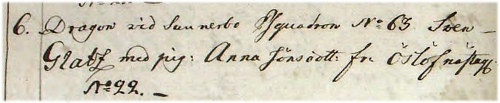 6. Dragon vid Sunnerbo Squadron No 63. Sven
Glatz med pig: Anna Jönsdott: fr:
No 22. –